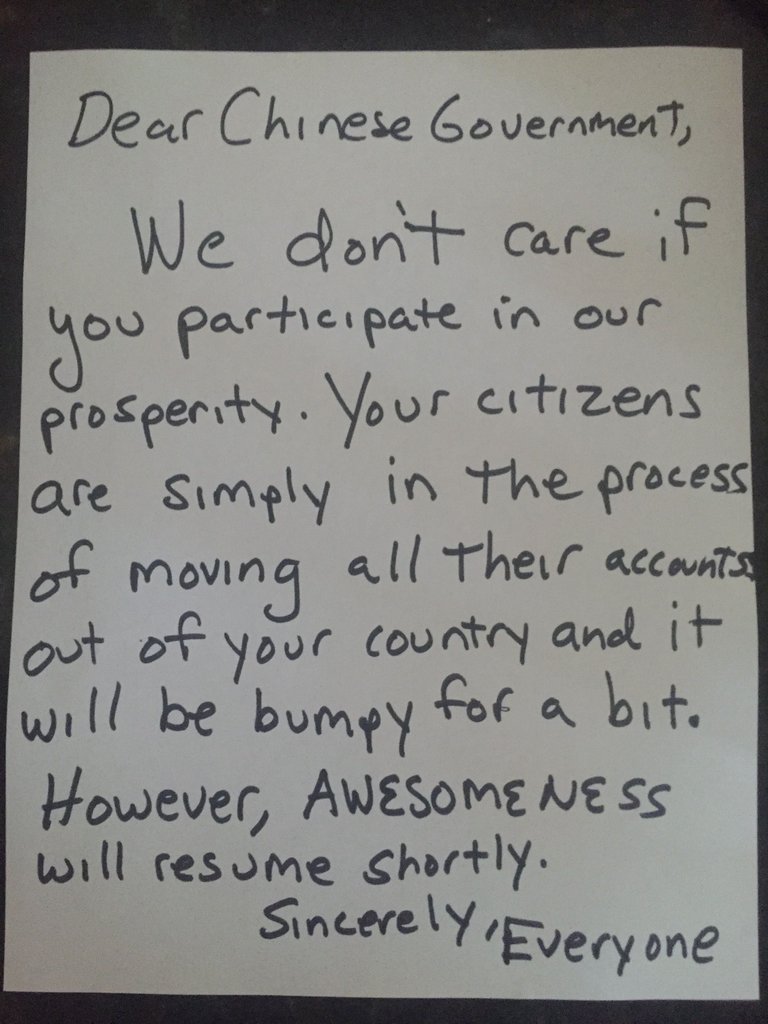 Dear Chinese Government,
We don't care if
you participate in our
prosperity. Your citizens
are simply in the process
of moving all their accounts
out of your country and it
will be bumpy for a bit.
However, AWESOMENESS
will resume shortly.
Sincerely, Everyone